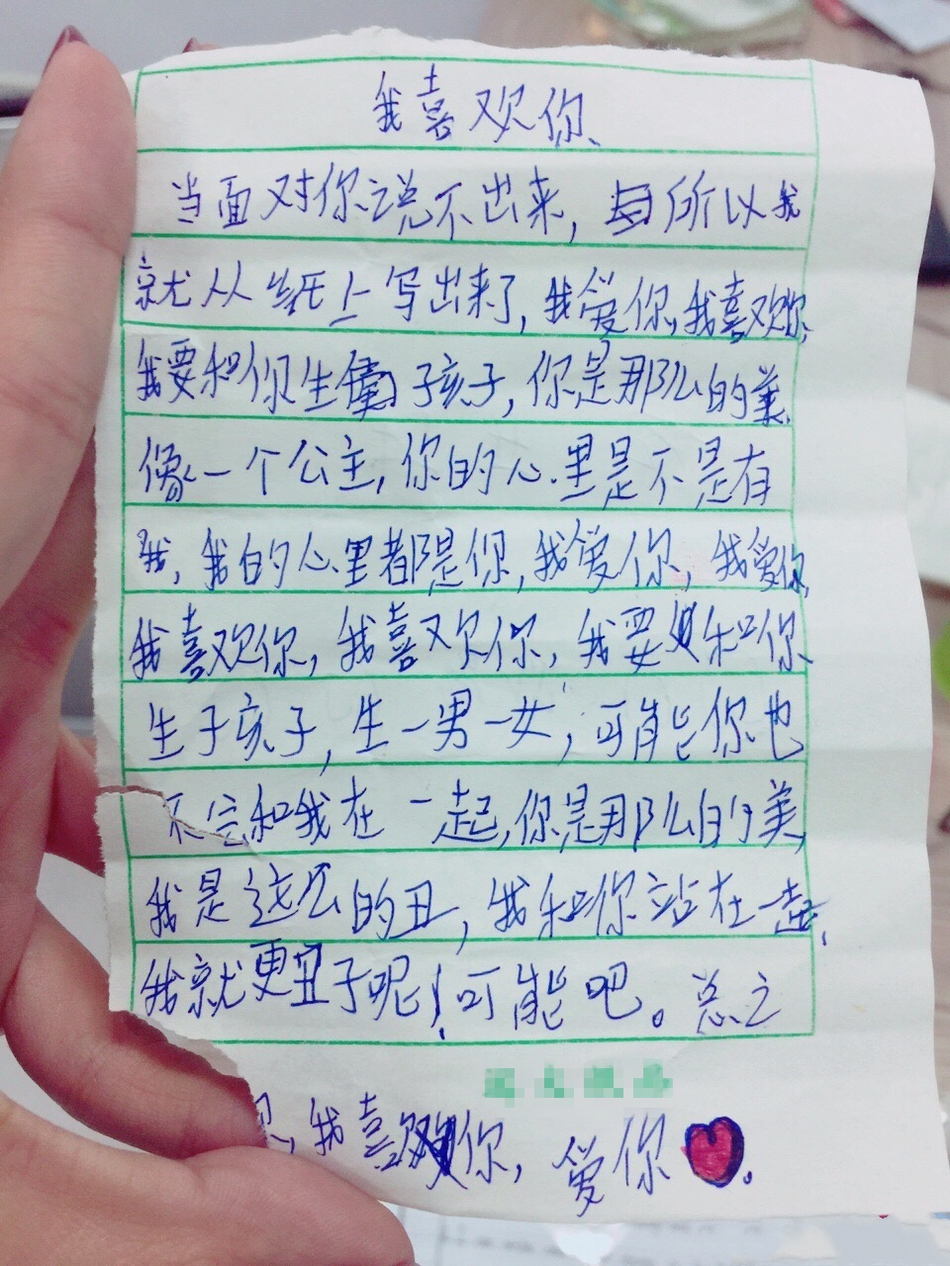 我喜欢你、
当面对你说不出来，所以我
就从纸上写出来了，我爱你，我喜欢你，
我要和你生子孩子，你是那么的美，
像一个公主，你的心里是不是有
我，我的心里都是你，我爱你，我爱你，
我喜欢你，我喜欢你，我要和你
生子孩子，生一男一女，可能你也
不会和我在一起，你是那么的美，
我是这么的丑，我和你站在一起，
我就更丑了呢！可能吧。总之
，我喜欢你，爱你。